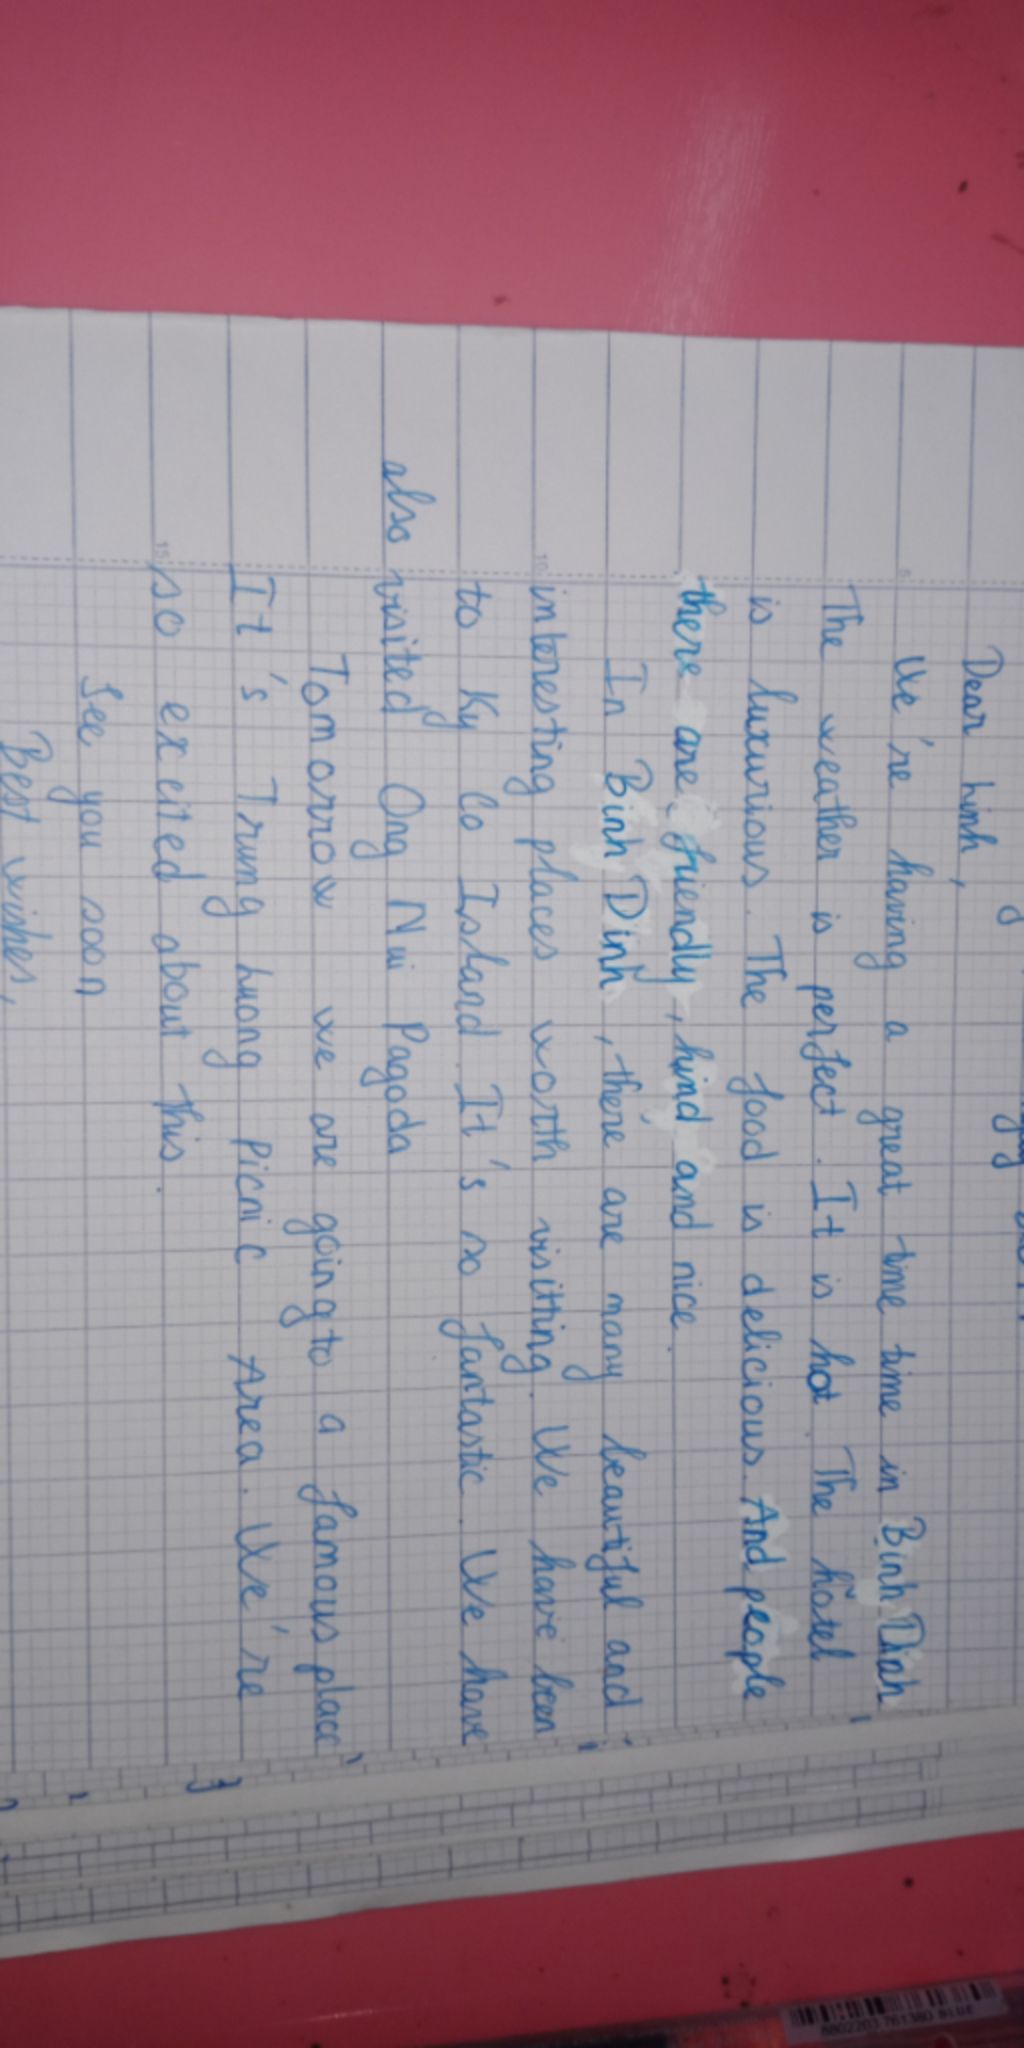 Dear Linh,
We're having a great time time in Binh Dinh
The weather is perfect. It is hot. The hotel
is luxurious. The food is delicious. And people
there are friendly, kind and nice.
In Binh Dinh, there are many beautiful and
interesting places worth visitting. We have been
to Ky Co Island. It's so fantastic. We have
also visited Ong Nui Pagoda
Tomorrow we are going to a famous place
It's Trung Luong Picnic Area. We're
so excited about this.
See you soon
Best wishes,
8802203 761380 BLUE